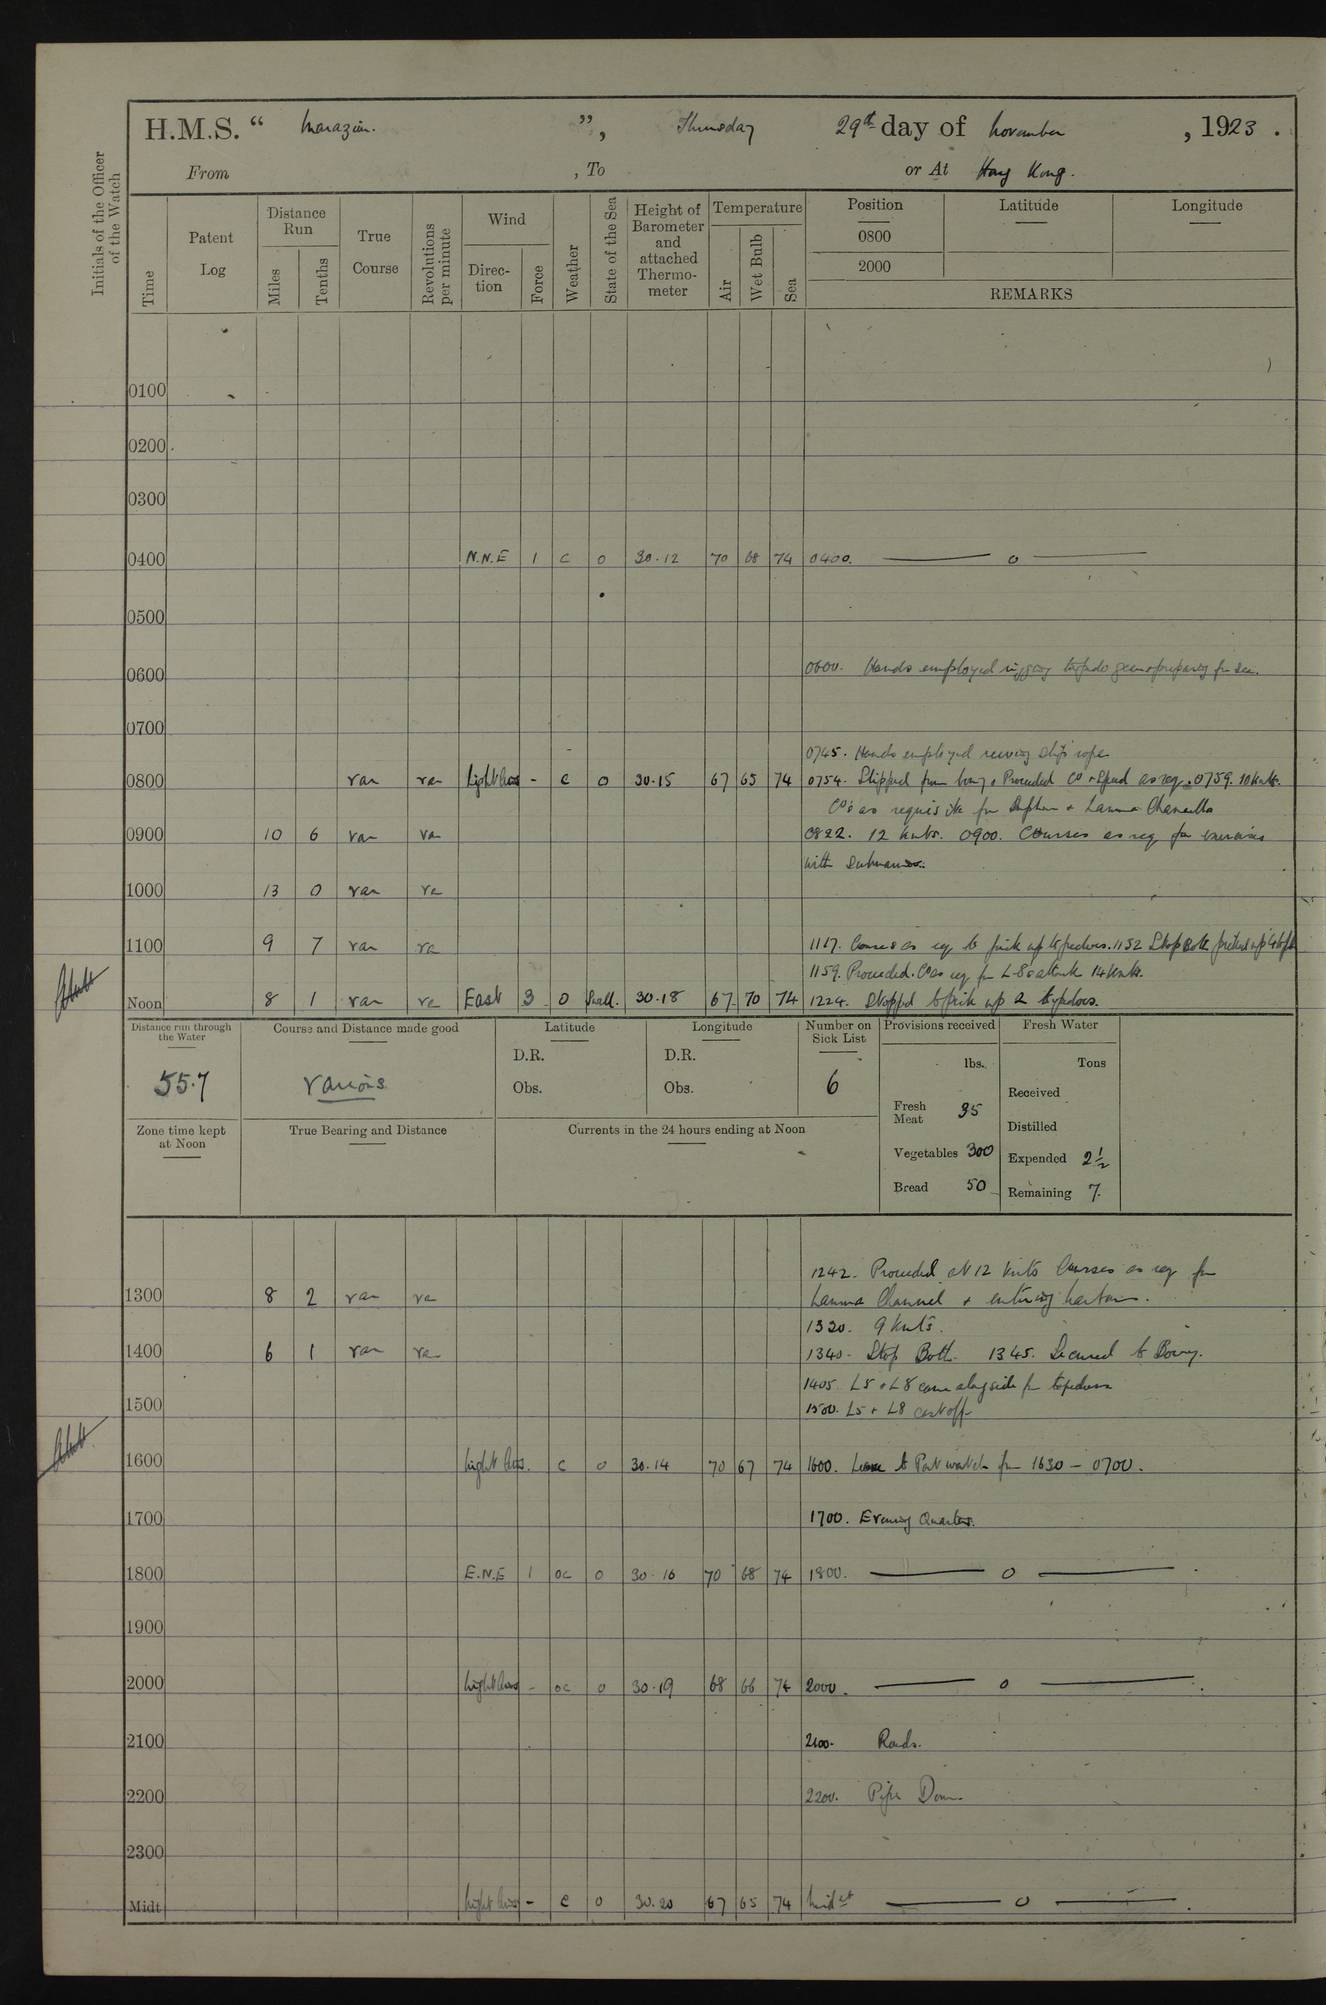 H.M.S. " Marazion. ", Thursday 29th day of November, 1923.
From , To or At Hong Kong.
Initials of the Officer of the Watch
Time Patent Log Distance Run Miles Tenths True Course Revolutions per minute Wind Direction Force Weather State of the Sea Height of Barometer and attached Thermometer Temperature Air Wet Bulb Sea Position Latitude Longitude
0800
2000
REMARKS
0100
0200
0300
0400 N.N.E 1 c 0 30.12 70 68 74 0400. — 0 —
0500
0600 0600. Hands employed rigging torpedo gear & preparing for sea.
0700
0745. Hands employed reeving slip rope
0800 var var Light Airs - c 0 30.15 67 65 74 0754. Slipped from buoy, Proceeded Co & Speed as req. 0759. 10 knts.
Co's as requisite for Sulphur & Lamma Channells
0900 10 6 var var 0822. 12 knts. 0900. Courses as req for exercises
with Submarines.
1000 13 0 var var
1100 9 7 var var 1117. Courses as req to pick up torpedoes. 1152 Stop Both
1159. Proceeded. Co as req for L-8's attack 14 knts.
Noon 8 1 var var East 3 0 Small. 30.18 67 70 74 1224. Stopped to pick up 2 torpedoes.
Distance run through the Water Course and Distance made good Latitude Longitude Number on Sick List Provisions received Fresh Water
D.R. D.R. lbs. Tons
55.7 Various Obs. Obs. 6 Received
Fresh Meat 35
Distilled
Zone time kept at Noon True Bearing and Distance Currents in the 24 hours ending at Noon
Vegetables 300 Expended 2½
Bread 50 Remaining 7.
1242. Proceeded at 12 knts Courses as req for
1300 8 2 var var Lamma Channel & entering harbour.
1320. 9 knts.
1400 6 1 var var 1340. Stop Both. 1345. Secured to Bouy.
1405 L5 & L8 came alongside for torpedoes
1500 1500. L5 & L8 cast off
1600 Light Airs. c 0 30.14 70 67 74 1600. Leave to Port watch from 1630 - 0700.
1700 1700. Evening Quarters.
1800 E.N.E 1 oc 0 30.16 70 68 74 1800. — 0 —
1900
2000 Light Airs - oc 0 30.19 68 66 74 2000. — 0 —
2100 2100. Rounds.
2200 2200. Pipe Down.
2300
Midt Light Airs - c 0 30.20 67 65 74 Midt — 0 —